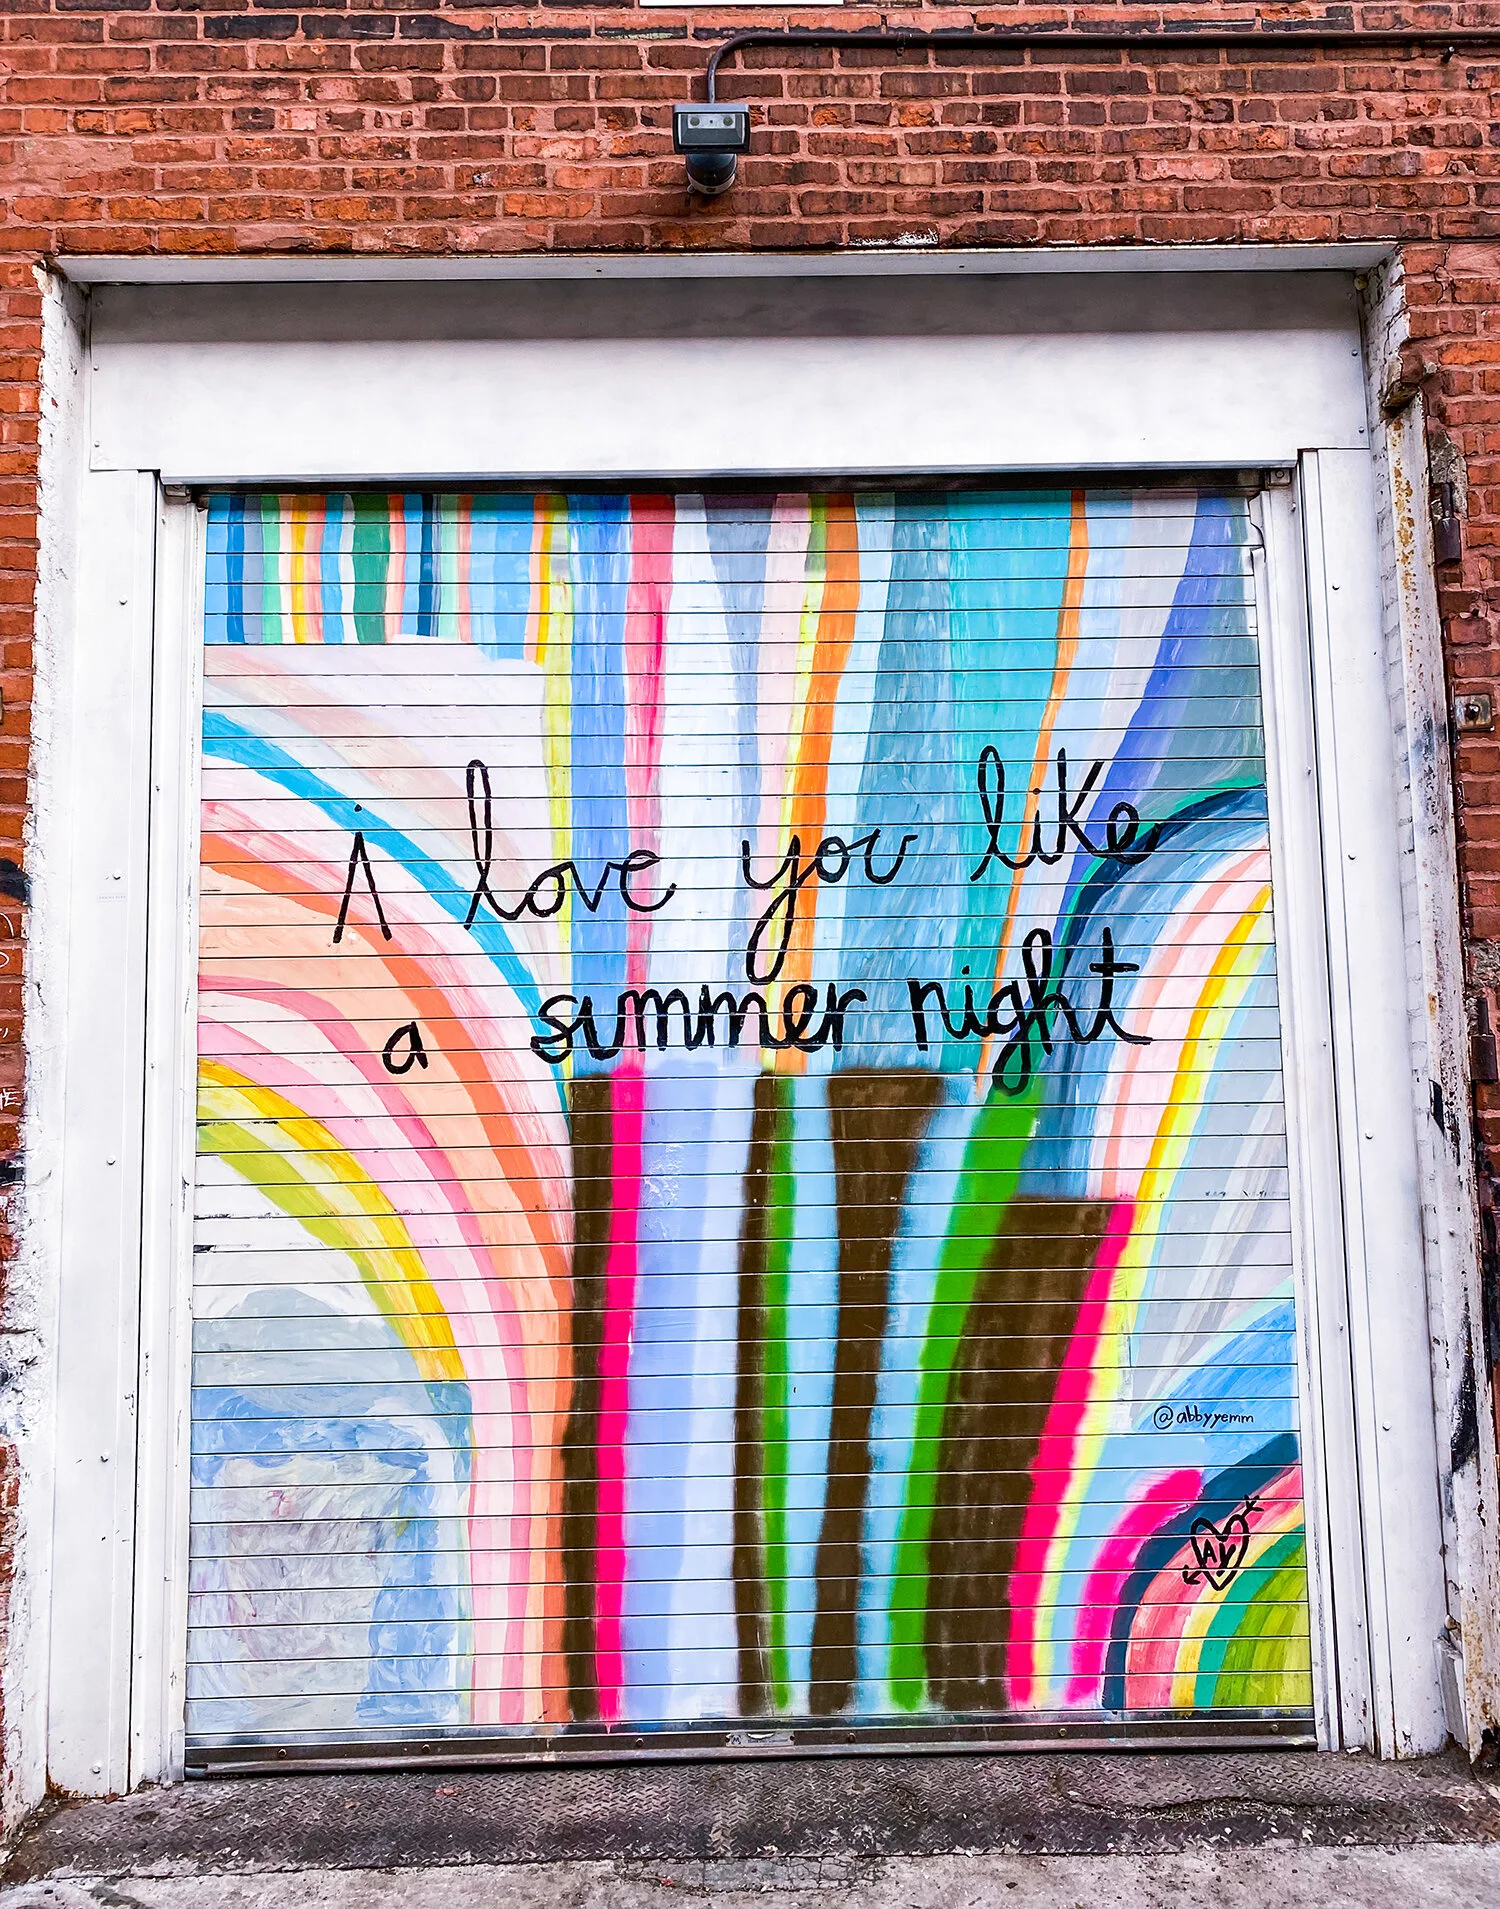 i love you like
a summer night
@abbyyemm